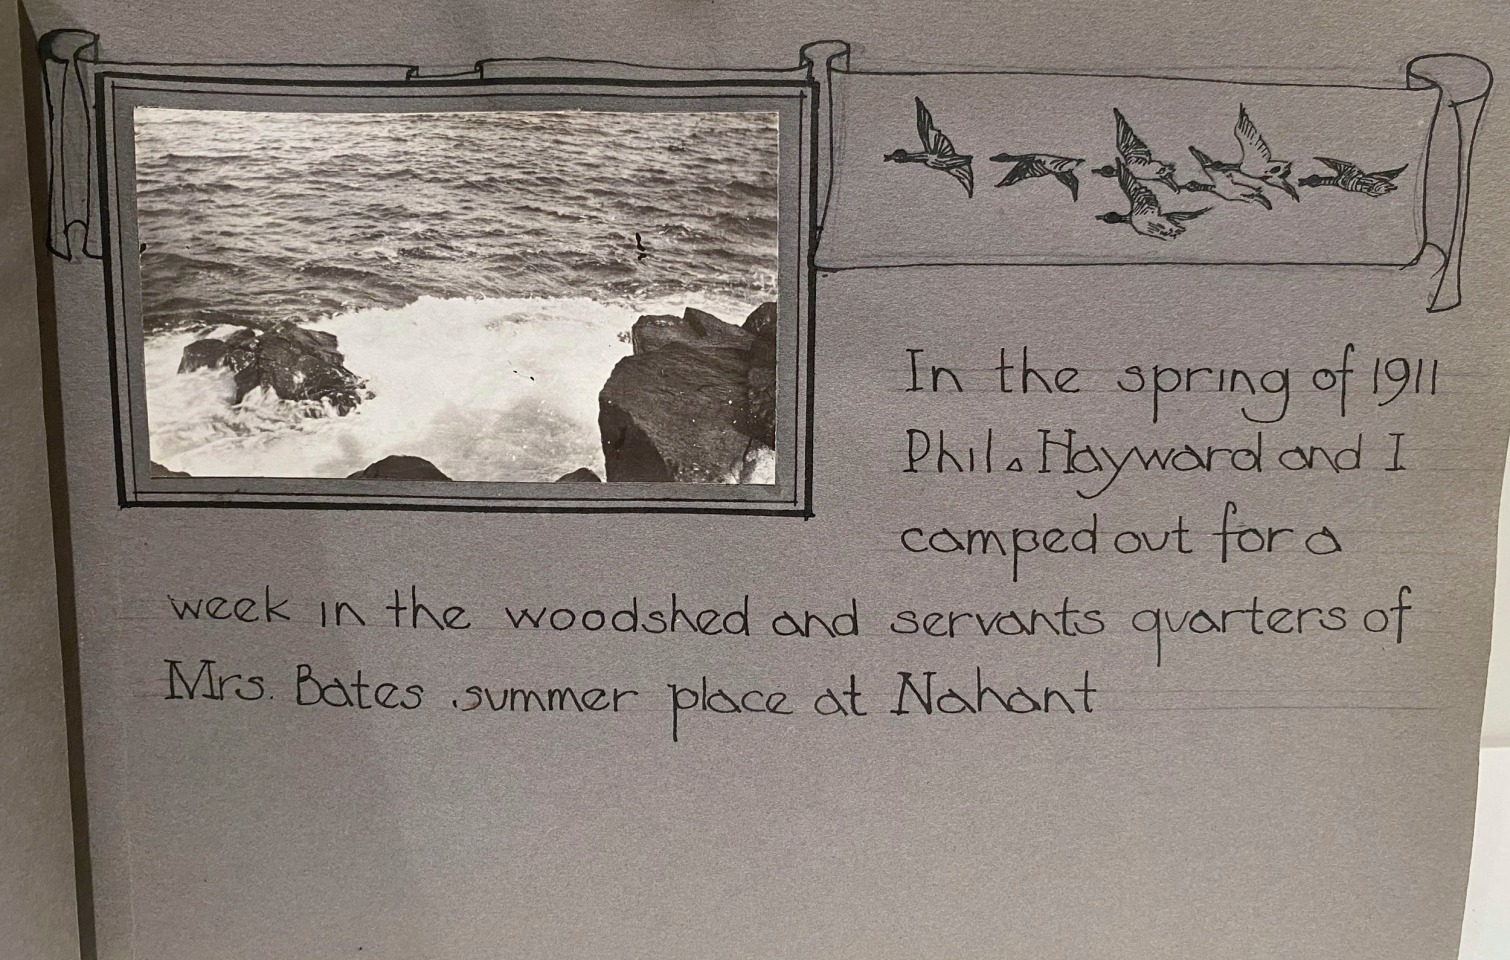 In the spring of 1911
Phil. Hayward and I
camped out for a
week in the woodshed and servants quarters of
Mrs. Bates summer place at Nahant